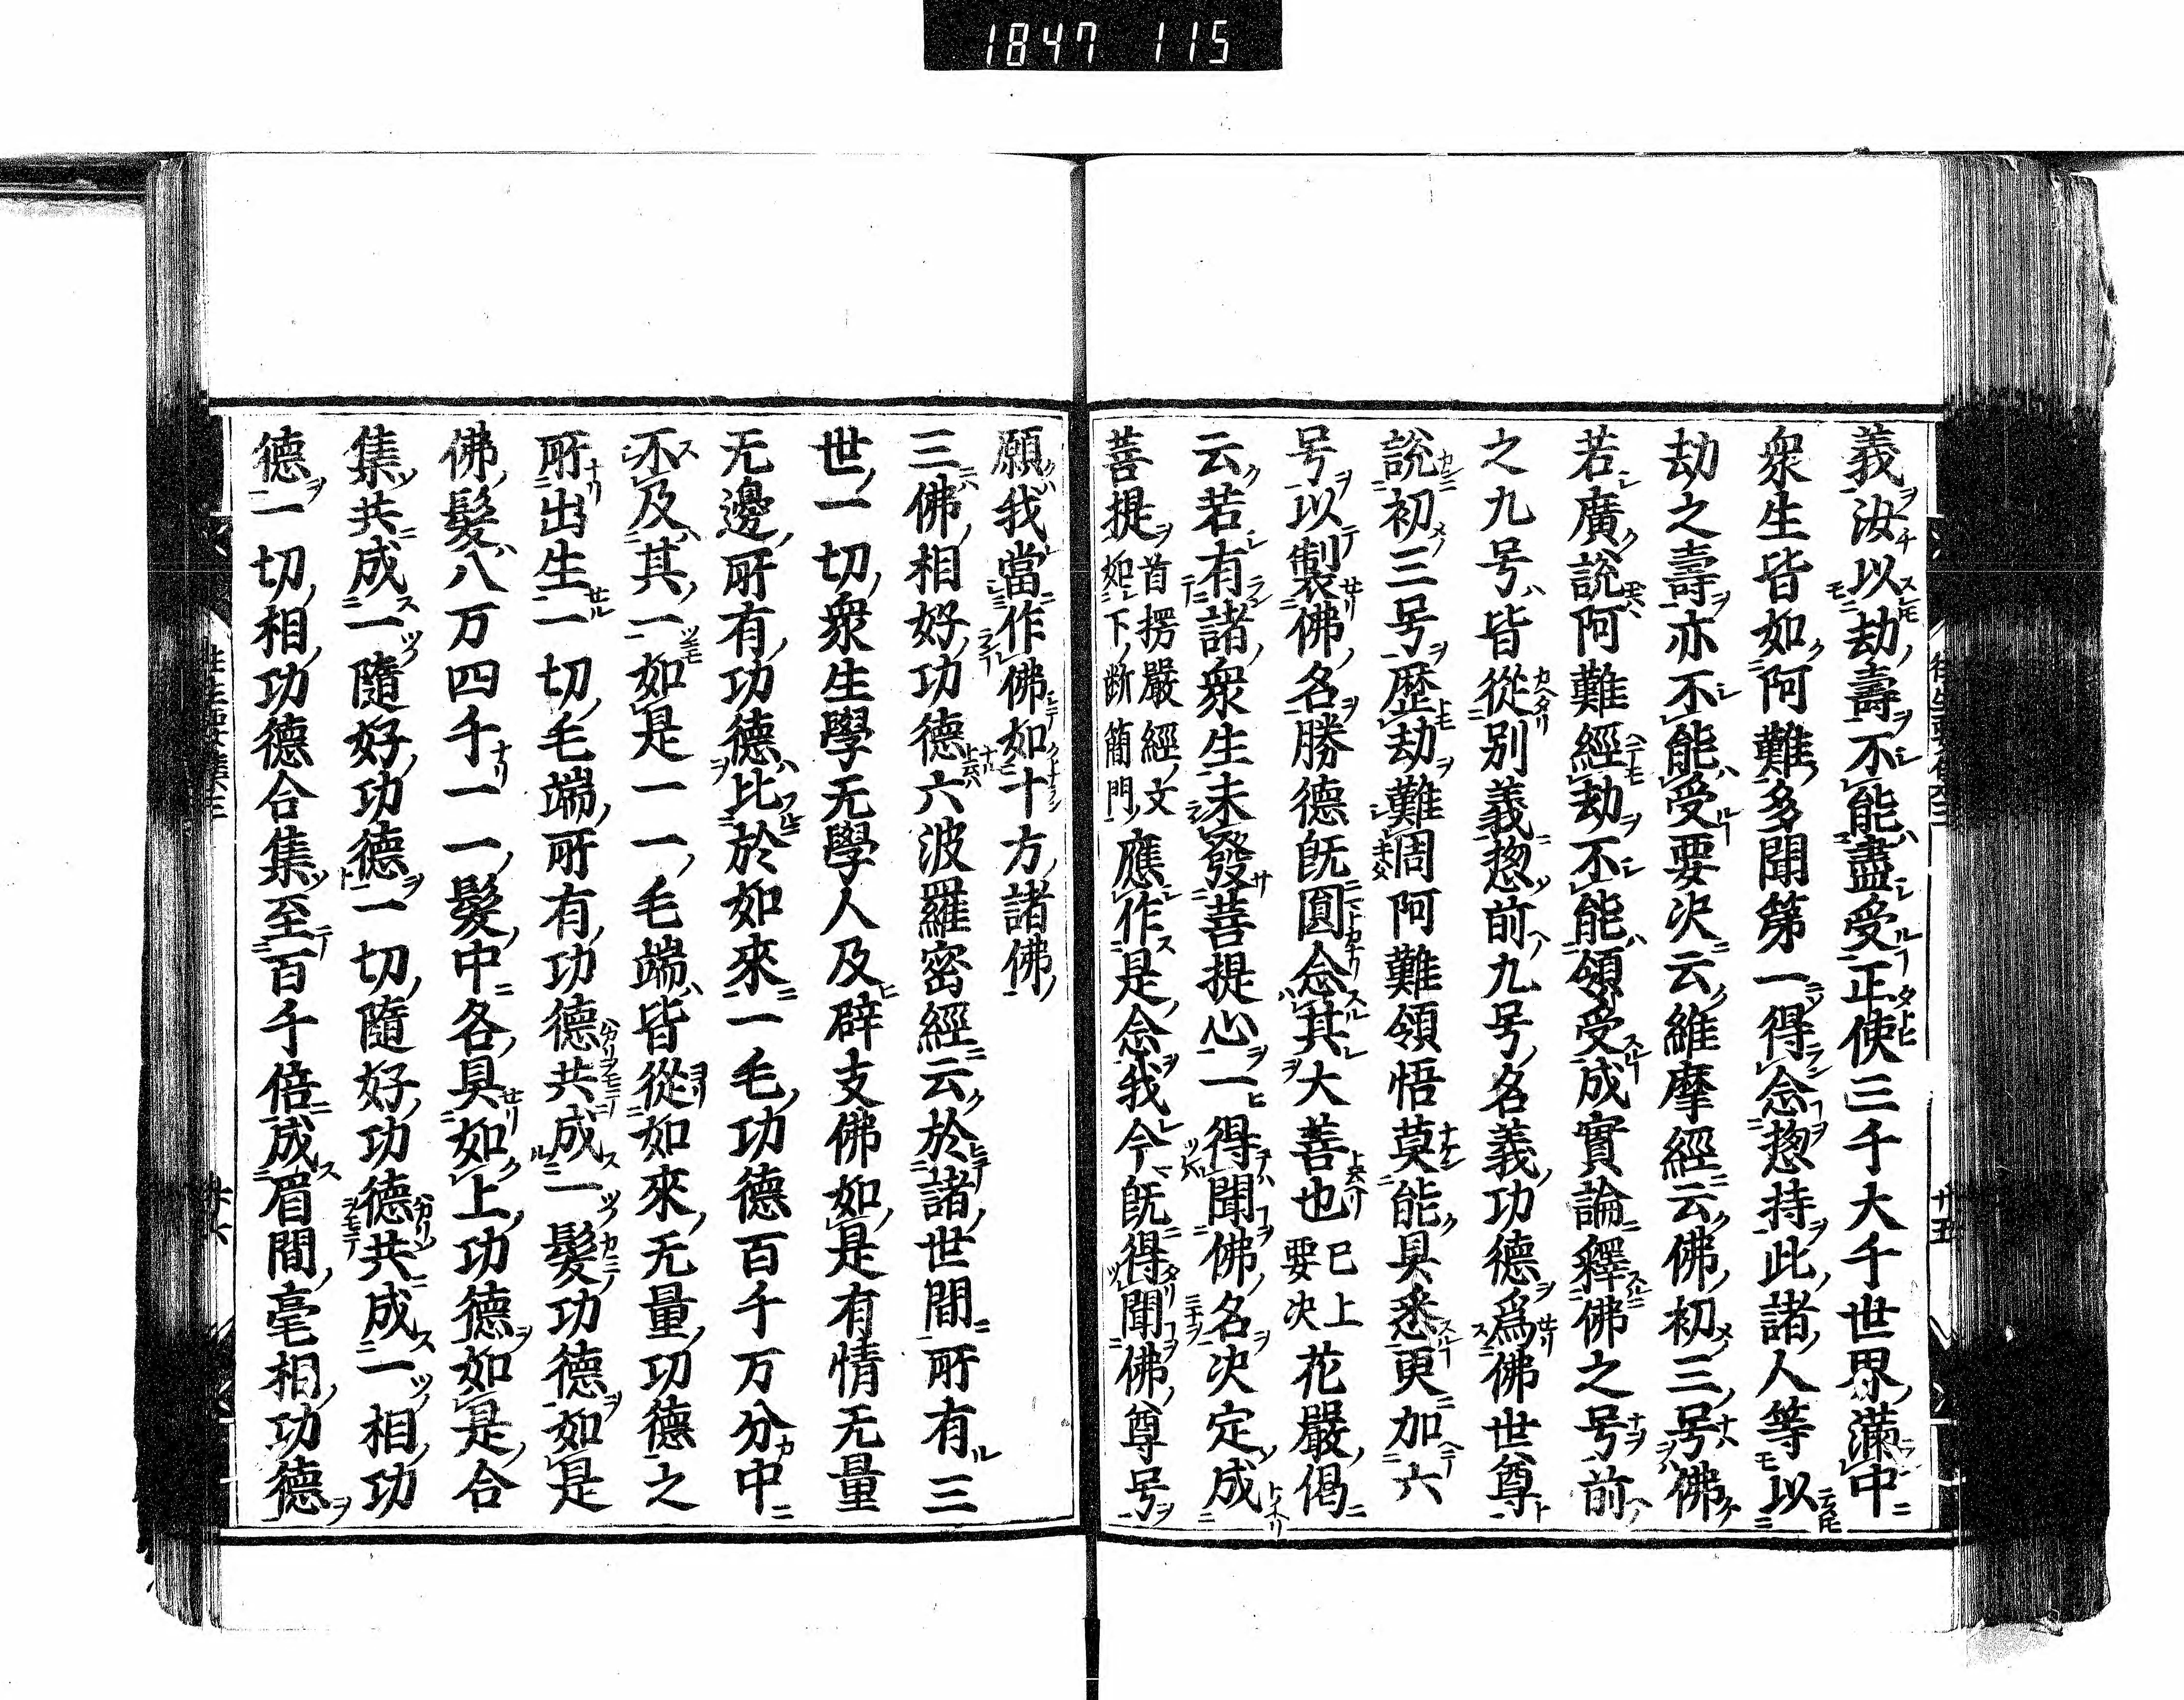 1847 115
義汝以劫壽不能盡受正使三千大千世界滿中
衆生皆如阿難多聞第一得念惣持此諸人等以
劫之壽亦不能受要决云維摩經云佛初三号佛
若廣說阿難經劫不能領受成實論釋佛之号前
之九号皆從別義惣前九号名義功德爲佛世尊
說初三号歷劫難周阿難領悟莫能具悉更加六
号以製佛名勝德既圓念其大善也已上要决花嚴偈
云若有諸衆生未發菩提心一得聞佛名决定成
菩提首楞嚴經文如下断簡門應作是念我今既得聞佛尊号
願我當作佛如十方諸佛
三佛相好功德六波羅密經云於諸世間所有三
世一切衆生學无學人及辟支佛如是有情无量
无邊所有功德比於如來一毛功德百千万分中
不及其一如是一一毛端皆從如來无量功德之
所出生一切毛端所有功德共成一髮功德如是
佛髮八万四千一一髮中各具如上功德如是合
集共成一隨好功德一切隨好功德共成一相功
德一切相功德合集至百千倍成眉間毫相功德